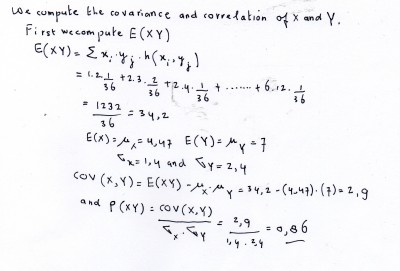 We compute the covariance and correlation of X and Y.
First we compute E(XY)
E(XY) = Σ xᵢ · yⱼ · h(xᵢ, yⱼ)
= 1.2. 1/36 + 2.3. 2/36 + 2.4. 1/36 + ....... + 6.12. 1/36
= 1232/36 = 34,2
E(X) = μₓ = 4,47 E(Y) = μ_Y = 7
σₓ = 1,4 and σ_Y = 2,4
COV(X,Y) = E(XY) - μₓ · μ_Y = 34,2 - (4,47) · (7) = 2,9
and ρ(XY) = COV(X,Y) / σₓ · σ_Y = 2,9 / 1,4 . 2,4 = 0,86